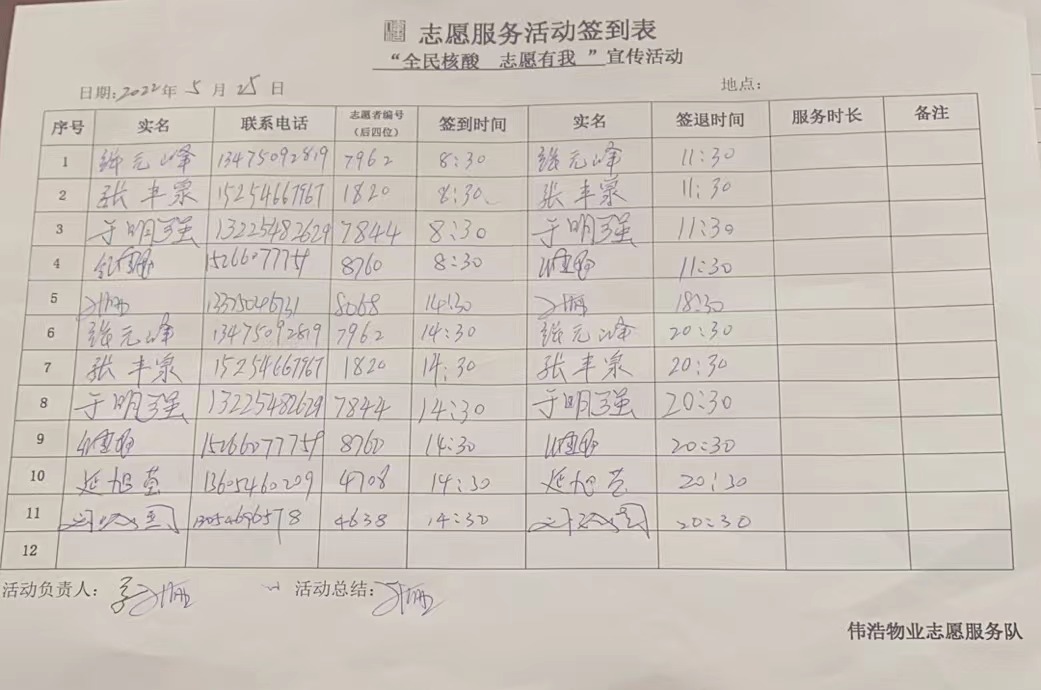 志愿服务活动签到表
“全民核酸 志愿有我 ”宣传活动
日期:2022年 5 月 25 日 地点:
序号 实名 联系电话 志愿者编号（后四位） 签到时间 实名 签退时间 服务时长 备注
1 元峰 13475092819 7962 8:30 元峰 11:30
2 张丰泉 15254667967 1820 8:30 张丰泉 11:30
3 于明强 13225482629 7844 8:30 于明强 11:30
4 15266077759 8760 8:30 11:30
5 8068 14:30 18:30
6 元峰 13475092819 7962 14:30 元峰 20:30
7 张丰泉 15254667967 1820 14:30 张丰泉 20:30
8 于明强 13225482629 7844 14:30 于明强 20:30
9 15266077759 8760 14:30 20:30
10 延旭 13605460209 4708 14:30 延旭 20:30
11 4638 14:30 20:30
12
活动负责人: 活动总结:
伟浩物业志愿服务队